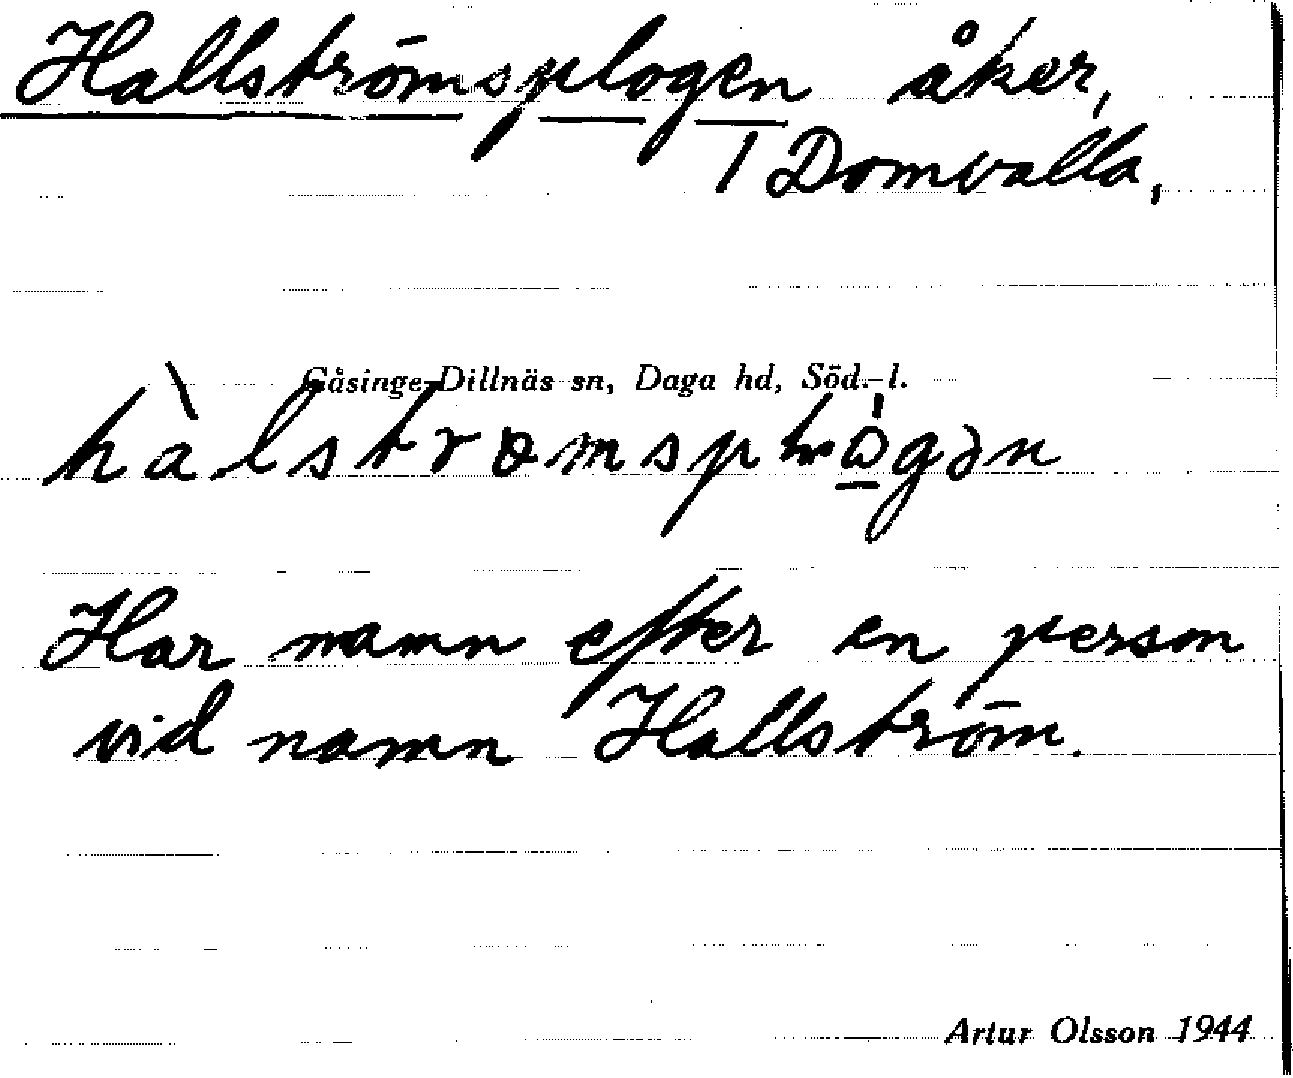 Hallströmsplogen åker,
/ Domvalla,
Gåsinge-Dillnäs sn, Daga hd, Söd.-l.
Har namn efter en person
vid namn Hallström.
Artur Olsson 1944